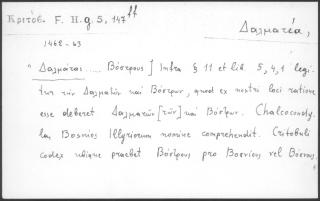 Κριτόβ. F. H. g 5, 147 ff
Δαλματέα,
1462-63
" Δαλμαται ..... Βόστρους ] Infra § 11 et lib. 5, 4, 1 legi-
tur τῶν Δαλματῶν καὶ Βόστρων, quod ex nostri loci ratione
esse deberet Δαλματῶν [τῶν] καὶ Βόστρων. Chalcocondy-
las Bosnios Illyriorum nomine comprehendit. Critobuli
codex ubique praebet Βόστρους pro Bosnios vel Βόσνας.
"